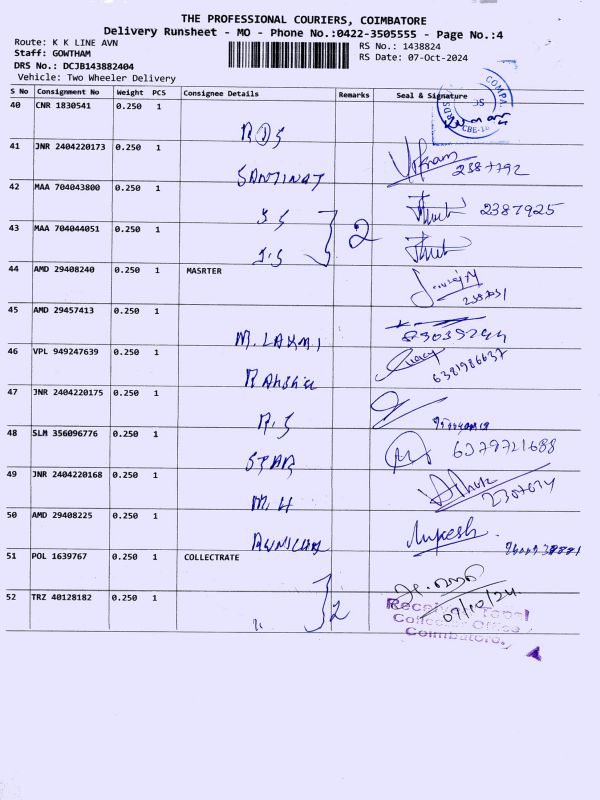 THE PROFESSIONAL COURIERS, COIMBATORE
Delivery Runsheet - MO - Phone No.:0422-3505555 - Page No.:4
Route: K K LINE AVN
RS No.: 1438824
Staff: GOWTHAM
RS Date: 07-Oct-2024
DRS No.: DCJB143882404
Vehicle: Two Wheeler Delivery
S No Consignment No Weight PCS Consignee Details Remarks Seal & Signature
40 CNR 1830541 0.250 1
41 JNR 2404220173 0.250 1
2387792
42 MAA 704043800 0.250 1
2387925
43 MAA 704044051 0.250 1
2
44 AMD 29408240 0.250 1 MASRTER
45 AMD 29457413 0.250 1
M. LAXMI
46 VPL 949247639 0.250 1
6381986637
47 JNR 2404220175 0.250 1
R.S
48 SLM 356096776 0.250 1
STAR 6379721688
49 JNR 2404220168 0.250 1
M. H
50 AMD 29408225 0.250 1
51 POL 1639767 0.250 1 COLLECTRATE
52 TRZ 40128182 0.250 1
" 2
07/10/24
Tapal
Collector Office
Coimbatore.